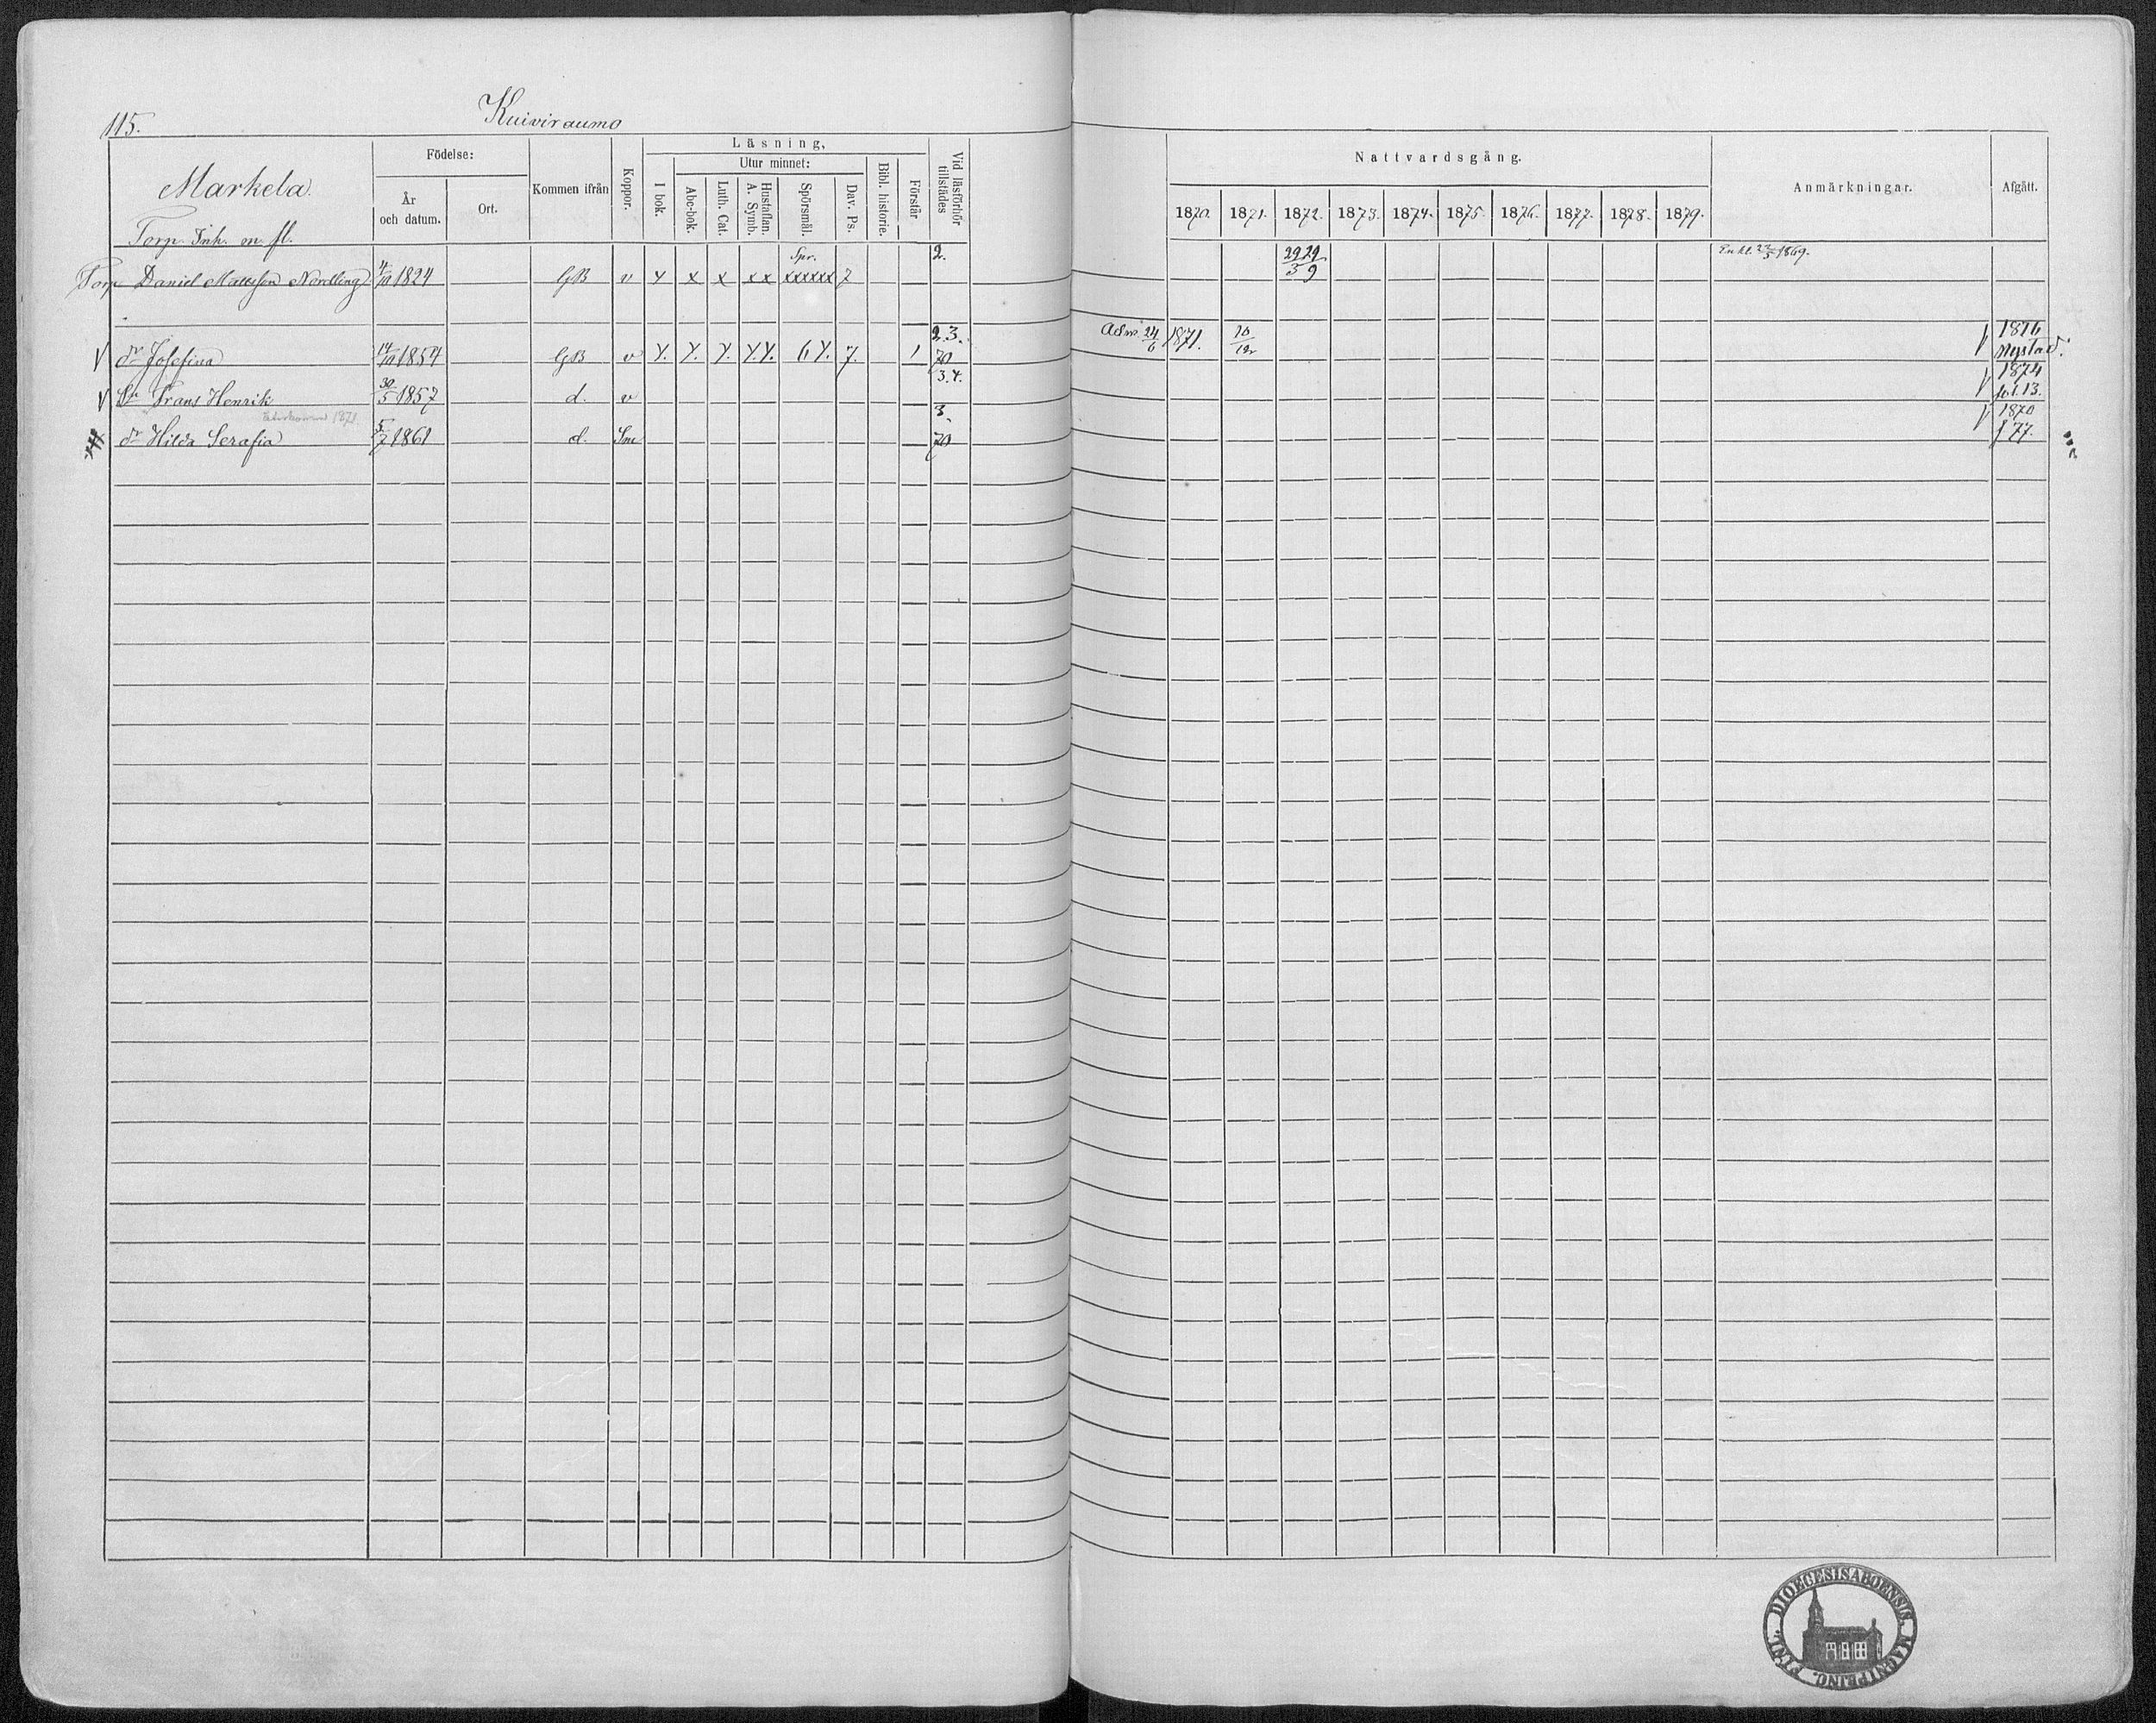 115.
Kuiviraumo
Markela.
Torp. Inh. m. fl.
Födelse:
År och datum.
Ort.
Kommen ifrån
Koppor.
Läsning.
I bok.
Utur minnet:
Abc-bok.
Luth. Cat.
Hustaflan. A. Symb.
Spörsmål.
Dav. Ps.
Bibl. historie.
Förstår
Vid läsförhör tillstädes
Nattvardsgång.
1870. 1871. 1872. 1873. 1874. 1875. 1876. 1877. 1878. 1879.
Anmärkningar.
Afgått.
Torp. Daniel Mattsson Nordling 4/10 1824 GB v y x x xx Spr. xxxxxx 7 2. 29/3 29/9 Enkl. 23/5 1869.
dr Josefina 14/10 1854 GB v y. y. y. y.y. 6 y. 7. 1 2.3. 70 Adm. 24/6 1871. 10/12 1876 Nystad.
Sn Frans Henrik 30/5 1857 d. v 3.4. 1874 fol. 13.
dr Hilda Serafia 5/7 1861 d. Sm 3. 70 1870 f 77.
SIGILL. DIOECESIS ABOENSIS. MAGNI PRINC. FINL.